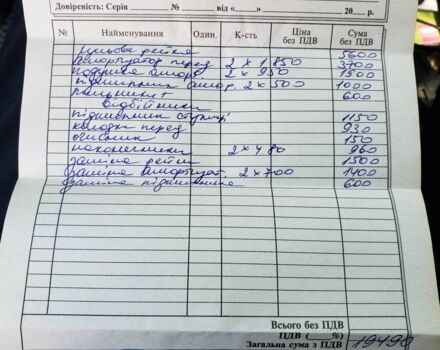 Довіреність: Серія № від « » 20 р.
№ Найменування Один. К-сть Ціна без ПДВ Сума без ПДВ
рульова рейка 5600
Амортизатор перед 2 x 1850 3700
подушка аморт 2 x 950 1500
підшипник амор. 2 x 500 1000
пильники +
відбійники 600
підшипник ступиці 1150
колодки перед 930
очисник 150
наконечники 2 x 480 960
заміна рейки 1500
заміна амортизат. 2 x 700 1400
заміна підшипника 600
Всього без ПДВ
ПДВ ( %)
Загальна сума з ПДВ 19490